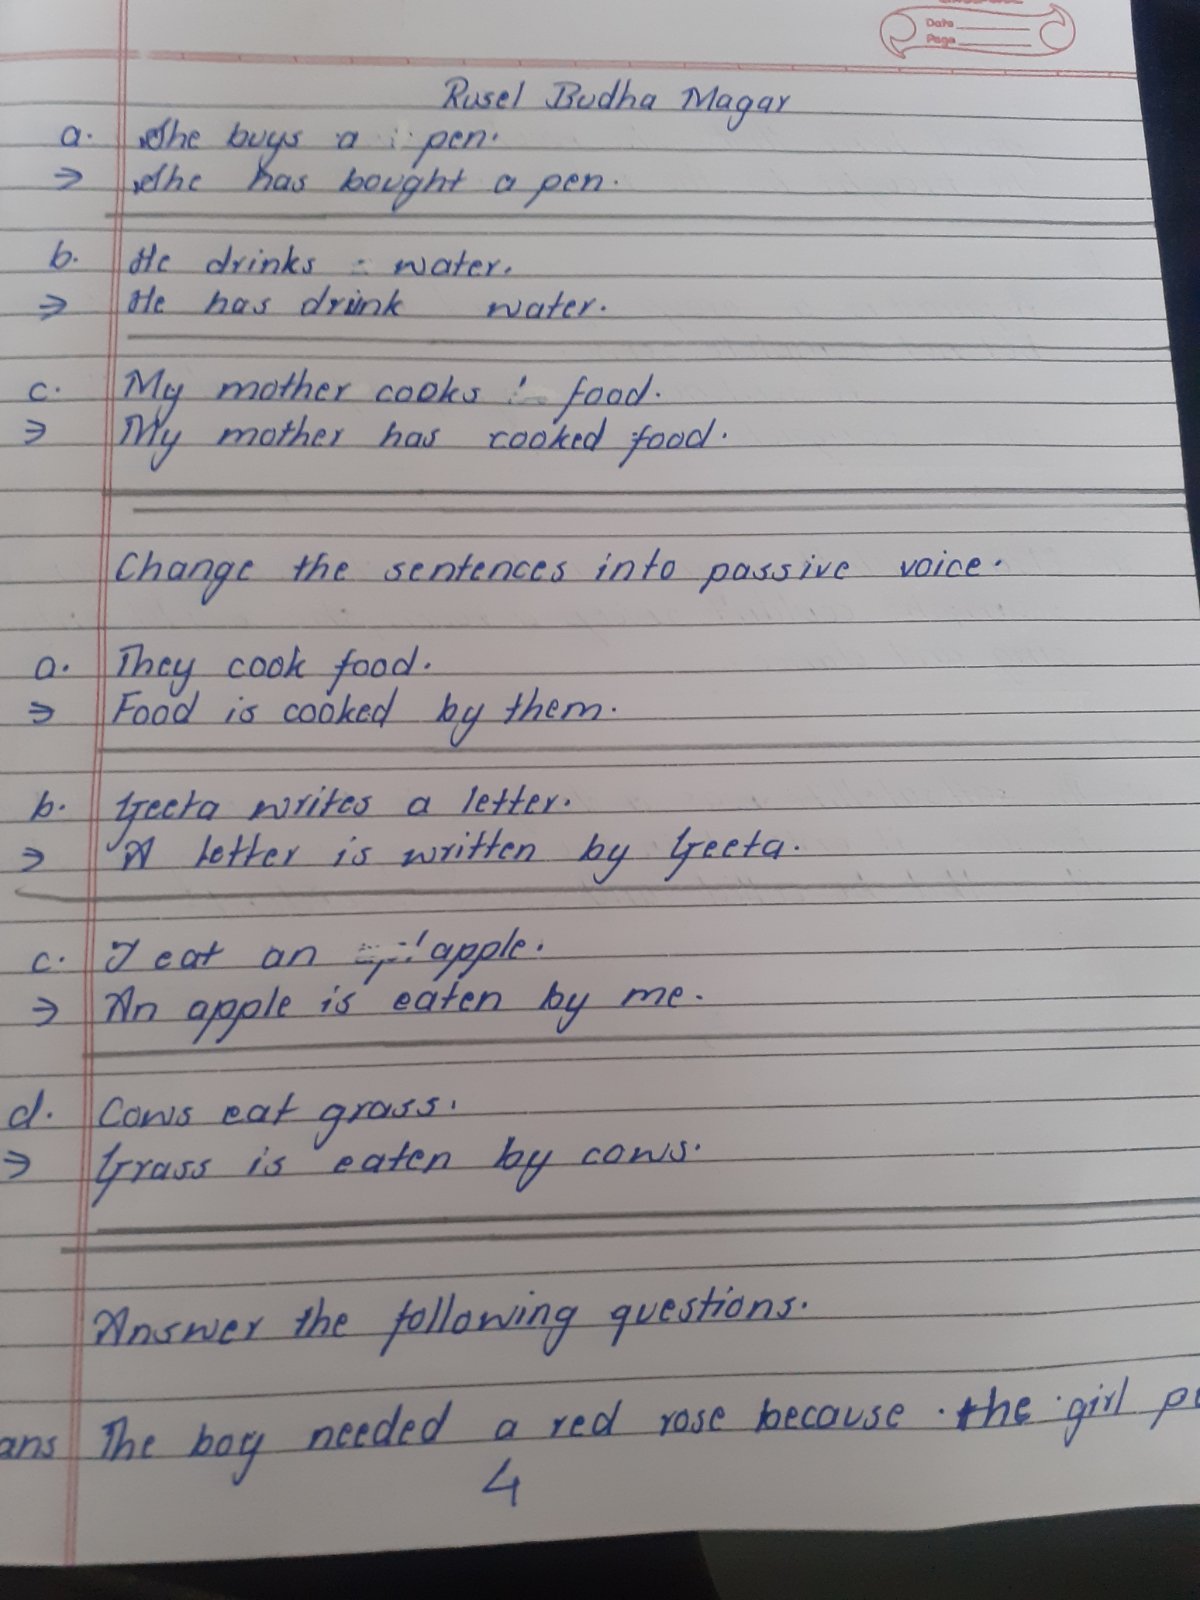 Date
Page
Rusel Budha Magar
a. She buys a pen.
⇒ She has bought a pen.
b. He drinks water.
⇒ He has drink water.
c. My mother cooks food.
⇒ My mother has cooked food.
Change the sentences into passive voice.
a. They cook food.
⇒ Food is cooked by them.
b. Geeta writes a letter.
⇒ A letter is written by Geeta.
c. I eat an apple.
⇒ An apple is eaten by me.
d. Cows eat grass.
⇒ Grass is eaten by cows.
Answer the following questions.
ans The boy needed a red rose because the girl
4